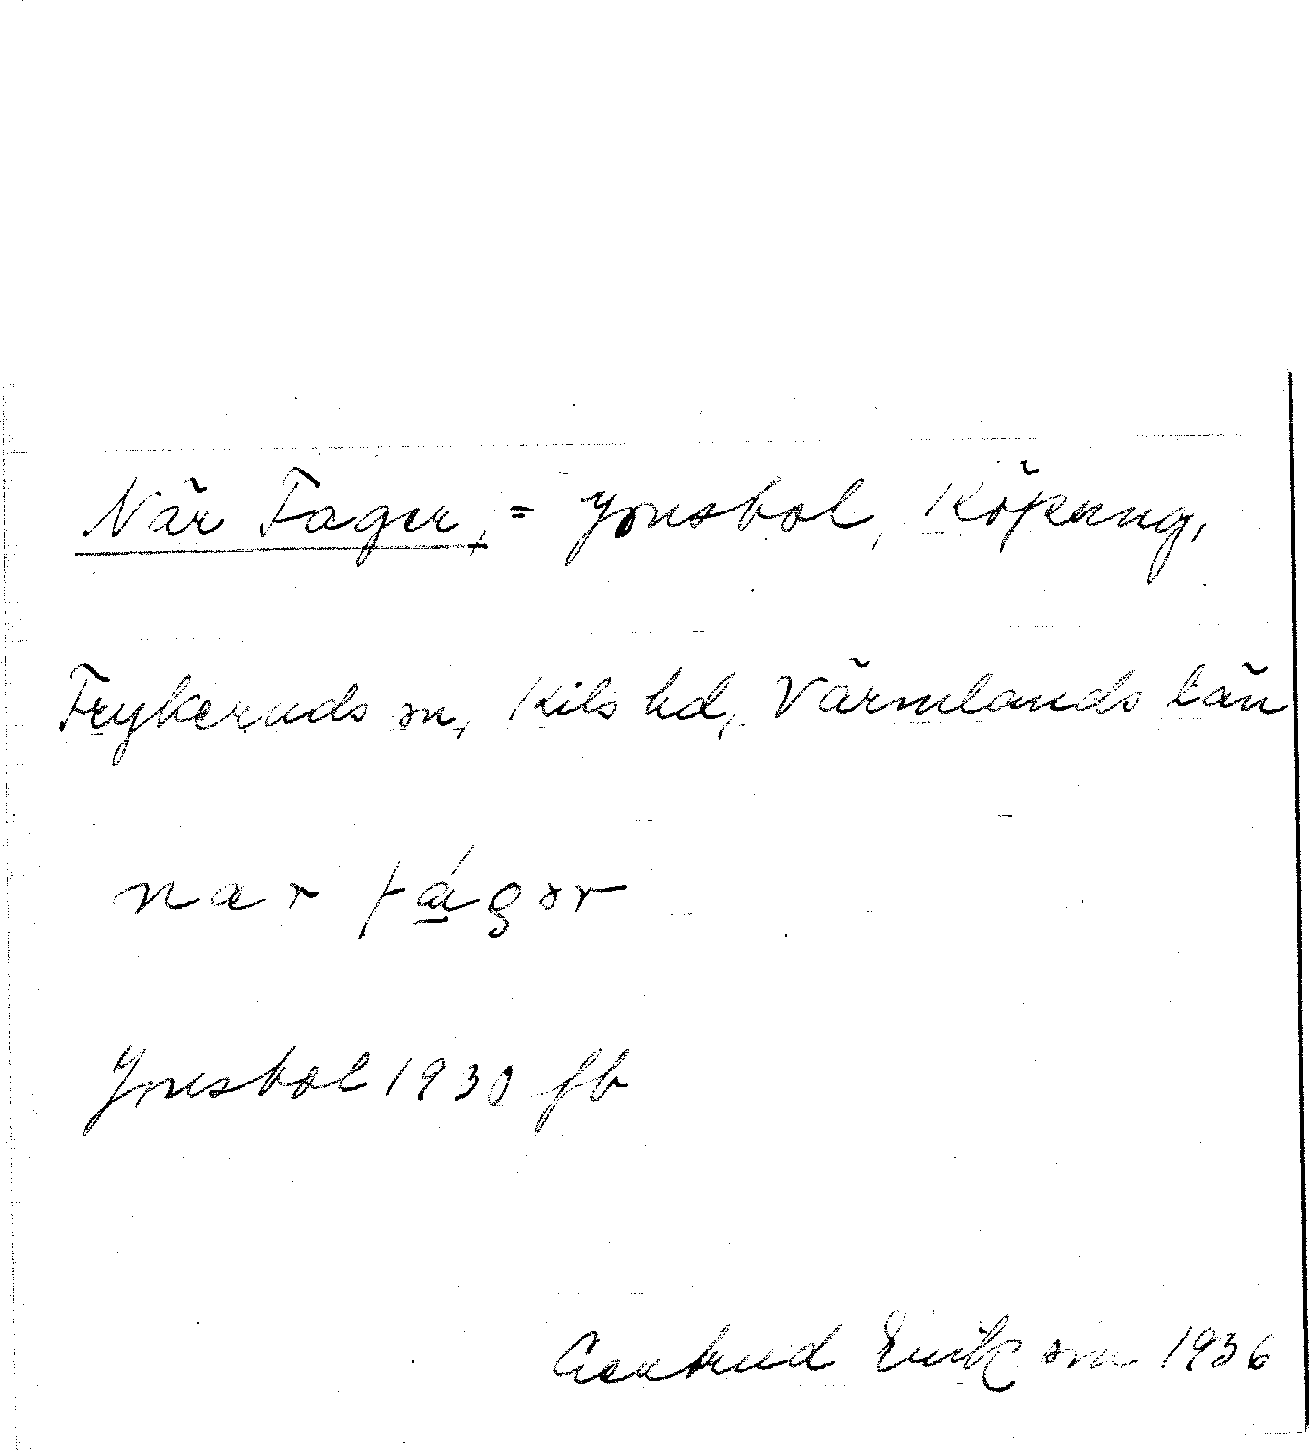 När Fager, = Jonsbol, Köpeng,
Frykeruds sn, Kils hd, Värmlands län
nar fágər
Jonsbol 1930 fb
Gertrud Erikson 1936